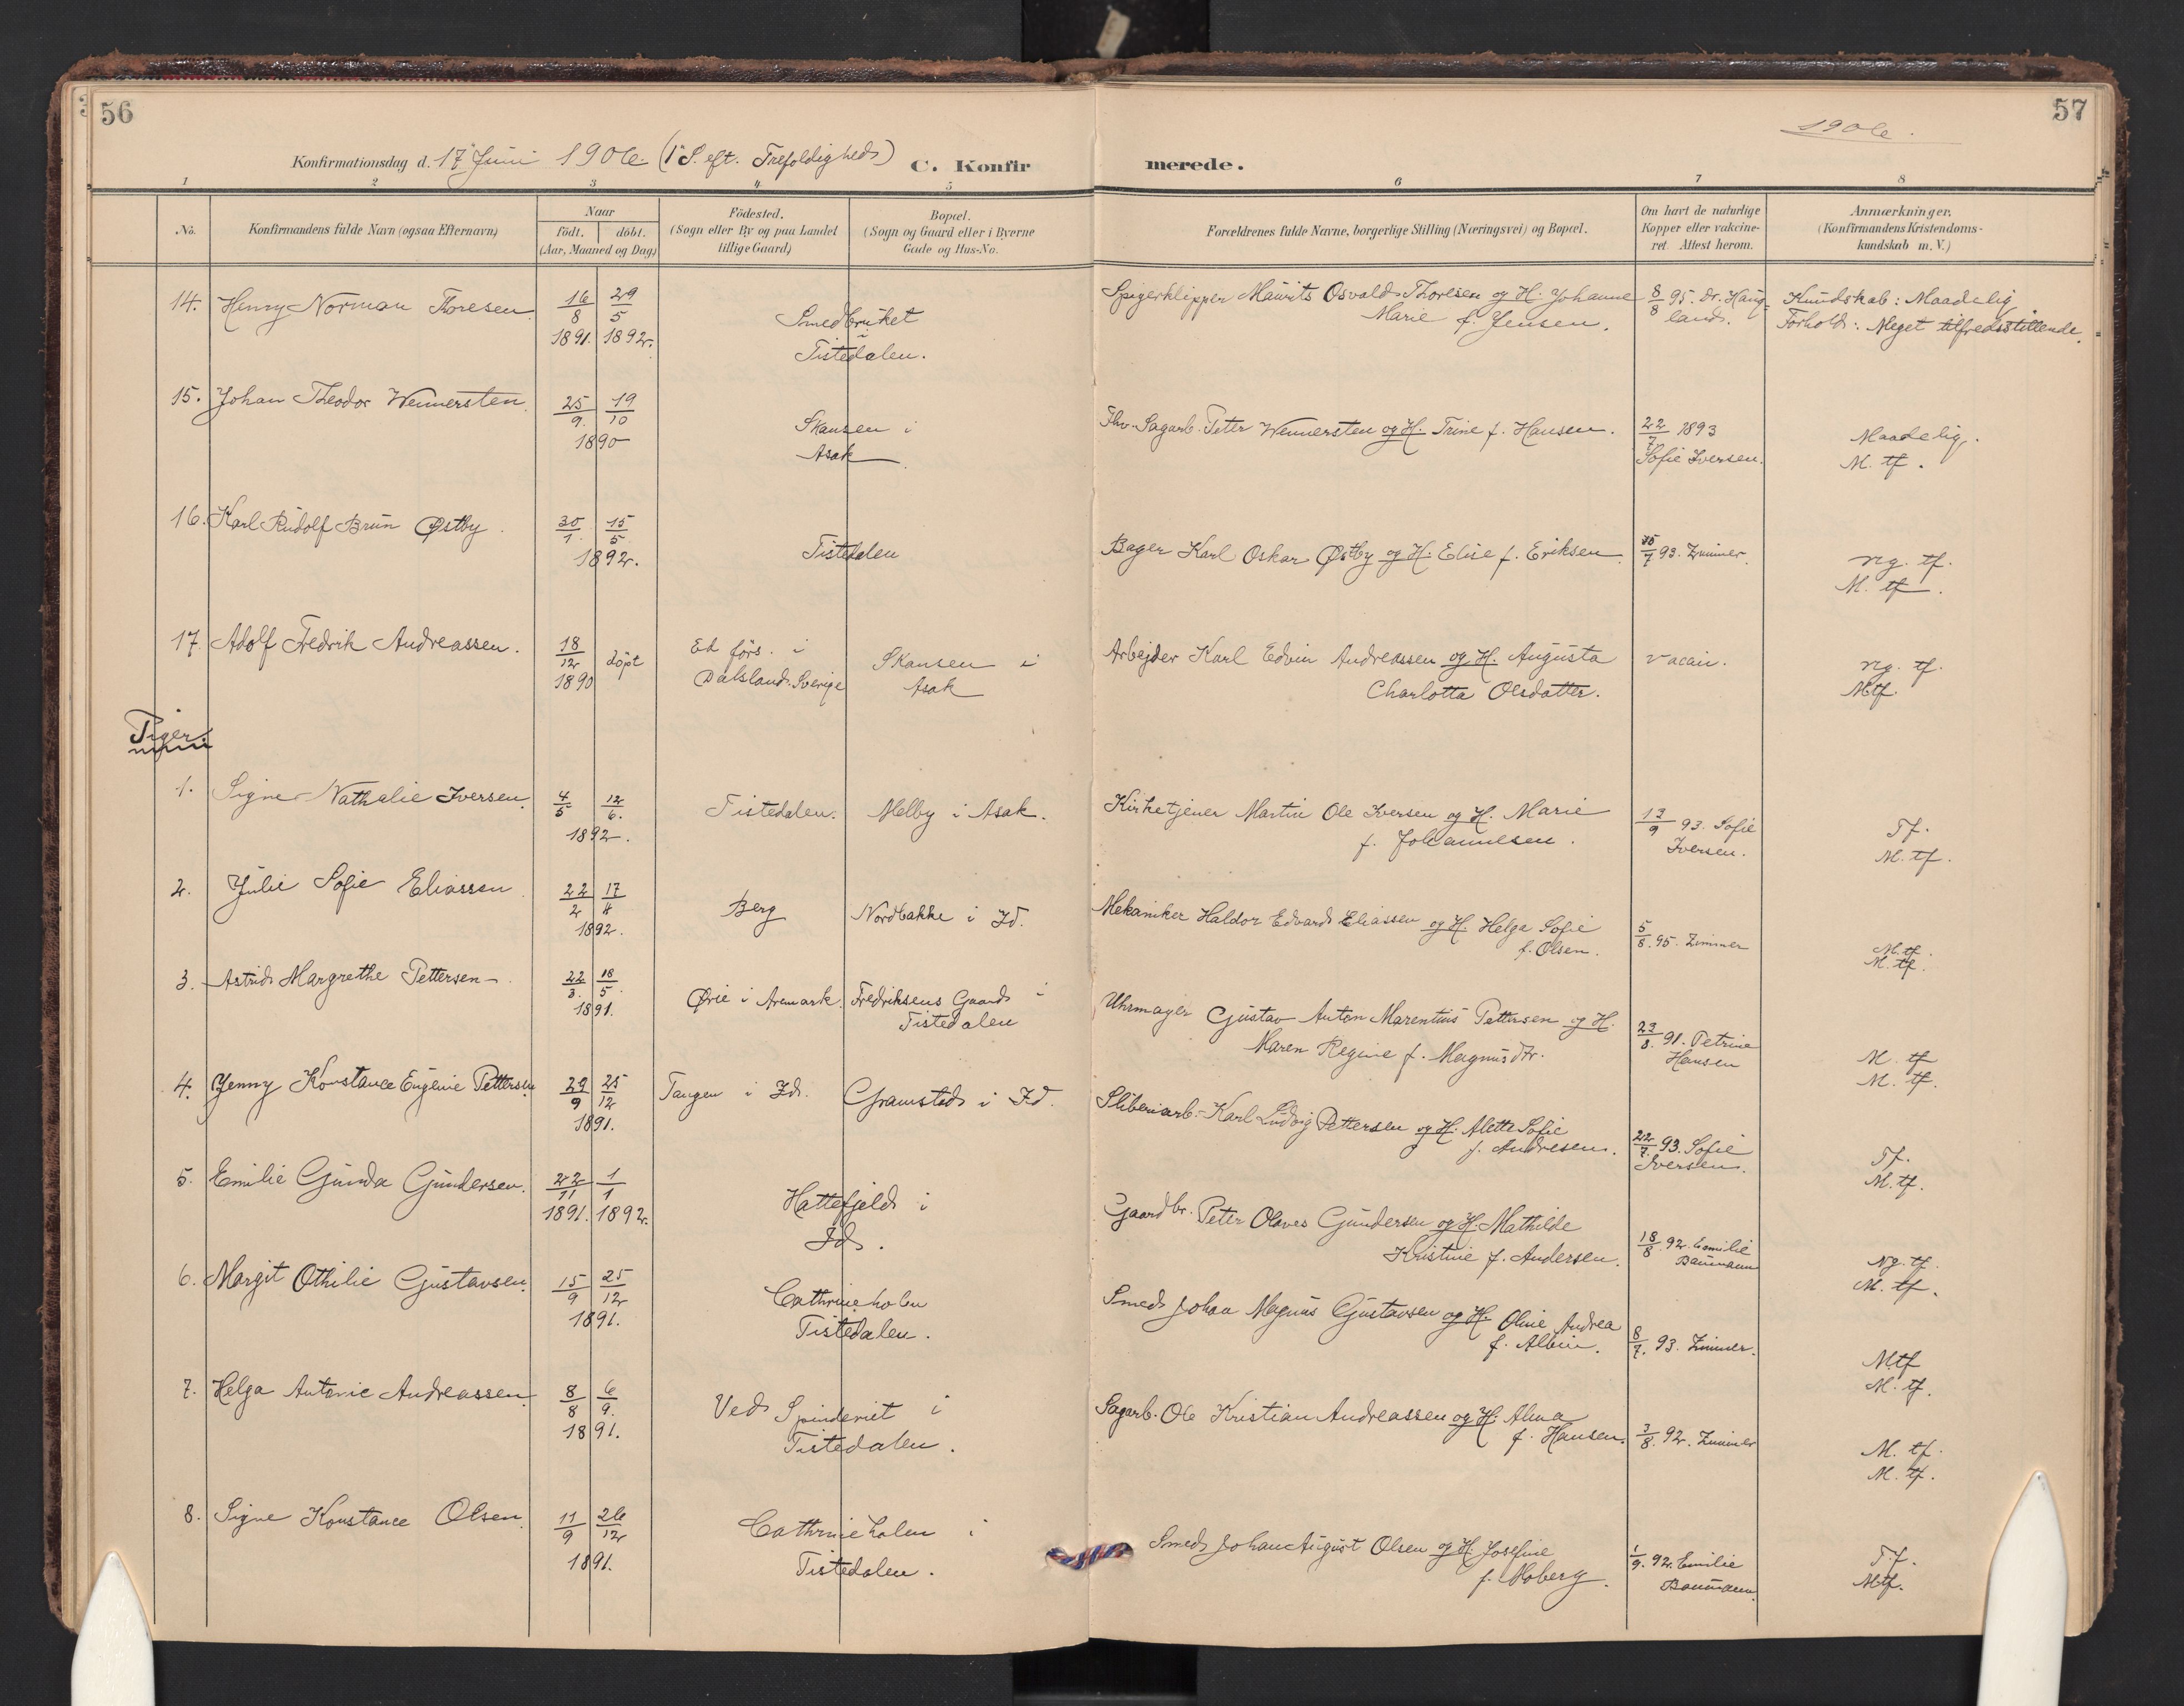 56
57
1906.
Konfirmationsdag d. 17 Juni 1906. (1 S. eft. Trefoldigheds) C. Konfirmerede.
1 2 3 4 5 6 7 8
No.
Konfirmandens fulde Navn (ogsaa Efternavn)
Naar
födt. döbt.
(Aar, Maaned og Dag)
Födested.
(Sogn eller By og paa Landet
tillige Gaard)
Bopæl.
(Sogn og Gaard eller i Byerne
Gade og Hus-No.
Forældrenes fulde Navne, borgerlige Stilling (Næringsvei) og Bopæl.
Om havt de naturlige
Kopper eller vakcine-
ret. Attest herom.
Anmærkninger.
(Konfirmandens Kristendoms-
kundskab m. V.)
14. Henry Norman Thoresen 16/8 1891. 29/5 1892. Smedbruket
Tistedalen.
Spigerklipper Maurits Osvald Thoresen og H. Johanne
Marie f. Jensen.
8/8 95. Dr. Haug-
land.
Kundskab: Maadelig
Forhold: Meget tilfredsstillende.
15. Johan Theodor Wennersten 25/9. 19/10 1890 Skansen i
Asak
Fhv. Sagarb. Peter Wennersten og H. Trine f. Hansen.
22/7 1893
Sofie Iversen.
Maadelig.
M. tf.
16. Karl Rudolf Brun Østby. 30/1. 15/5. 1892. Tistedalen
Bager Karl Oskar Østby og H. Elise f. Eriksen.
15/7 93. Zimmer.
Ng. tf.
M. tf.
17. Adolf Fredrik Andreassen. 18/12 1890 döpt Ed förs. i
Dalsland. Sverige
Skansen i
Asak
Arbejder Karl Edvin Andreassen og H. Augusta
Charlotta Olsdatter.
vacein.
Ng. tf.
M tf.
Piger.
1. Signe Nathalie Iversen. 4/5 12/6. 1892. Tistedalen. Melby i Asak.
Kirketjener Martin Ole Iversen og H. Marie
f. Johannesen.
13/9 93. Sofie
Iversen.
Tf.
M. tf.
2. Julie Sofie Eliassen. 22/2 17/4 1892. Berg Nordbakke i Id.
Mekaniker Haldor Edvard Eliassen og H. Helga Sofie
f. Olsen.
5/8. 95. Zimmer
M. tf.
M. tf.
3. Astrid Margrethe Pettersen 22/3. 18/5. 1891. Ørie i Aremark. Fredriksens Gaard i
Tistedalen
Uhrmager Gustav Anton Marentius Pettersen og H.
Maren Regine f. Magnusdtr.
23/8. 91. Petrine
Hansen
M. tf
M. tf.
4. Jenny Konstance Eugenie Pettersen 29/9 25/12 1891. Tangen i Id. Gramstad i Id.
Sliberiarb. Karl Ludvig Pettersen og H. Alette Sofie
f. Andresen.
22/7. 93. Sofie
Iversen.
Tf.
M. tf.
5. Emilie Gunda Gundersen. 22/11 1891. 1/1 1892. Hattefjeld i
Id.
Gaardbr. Peter Olaves Gundersen og H. Mathilde
Kristine f. Andersen.
18/8. 92. Emilie
Baumann
Ng. tf.
M. tf.
6. Margit Othilie Gustavsen. 15/9 25/12 1891. Cathrineholm
Tistedalen.
Smed Johan Magnus Gustavsen og H. Oline Andrea
f. Albin.
8/7. 93. Zimmer.
M. tf
M. tf.
7. Helga Antonie Andreassen. 8/8 6/9. 1891. Ved Spinderiet i
Tistedalen.
Sagarb. Ole Kristian Andreassen og H. Alma
f. Hansen.
3/8. 92. Zimmer
M. tf.
M. tf.
8. Signe Konstance Olsen. 11/9 26/12 1891. Cathrineholm i
Tistedalen.
Smed Johan August Olsen og H. Josefine
f. Moberg.
1/9. 92. Emilie
Baumann.
Tf.
M tf.